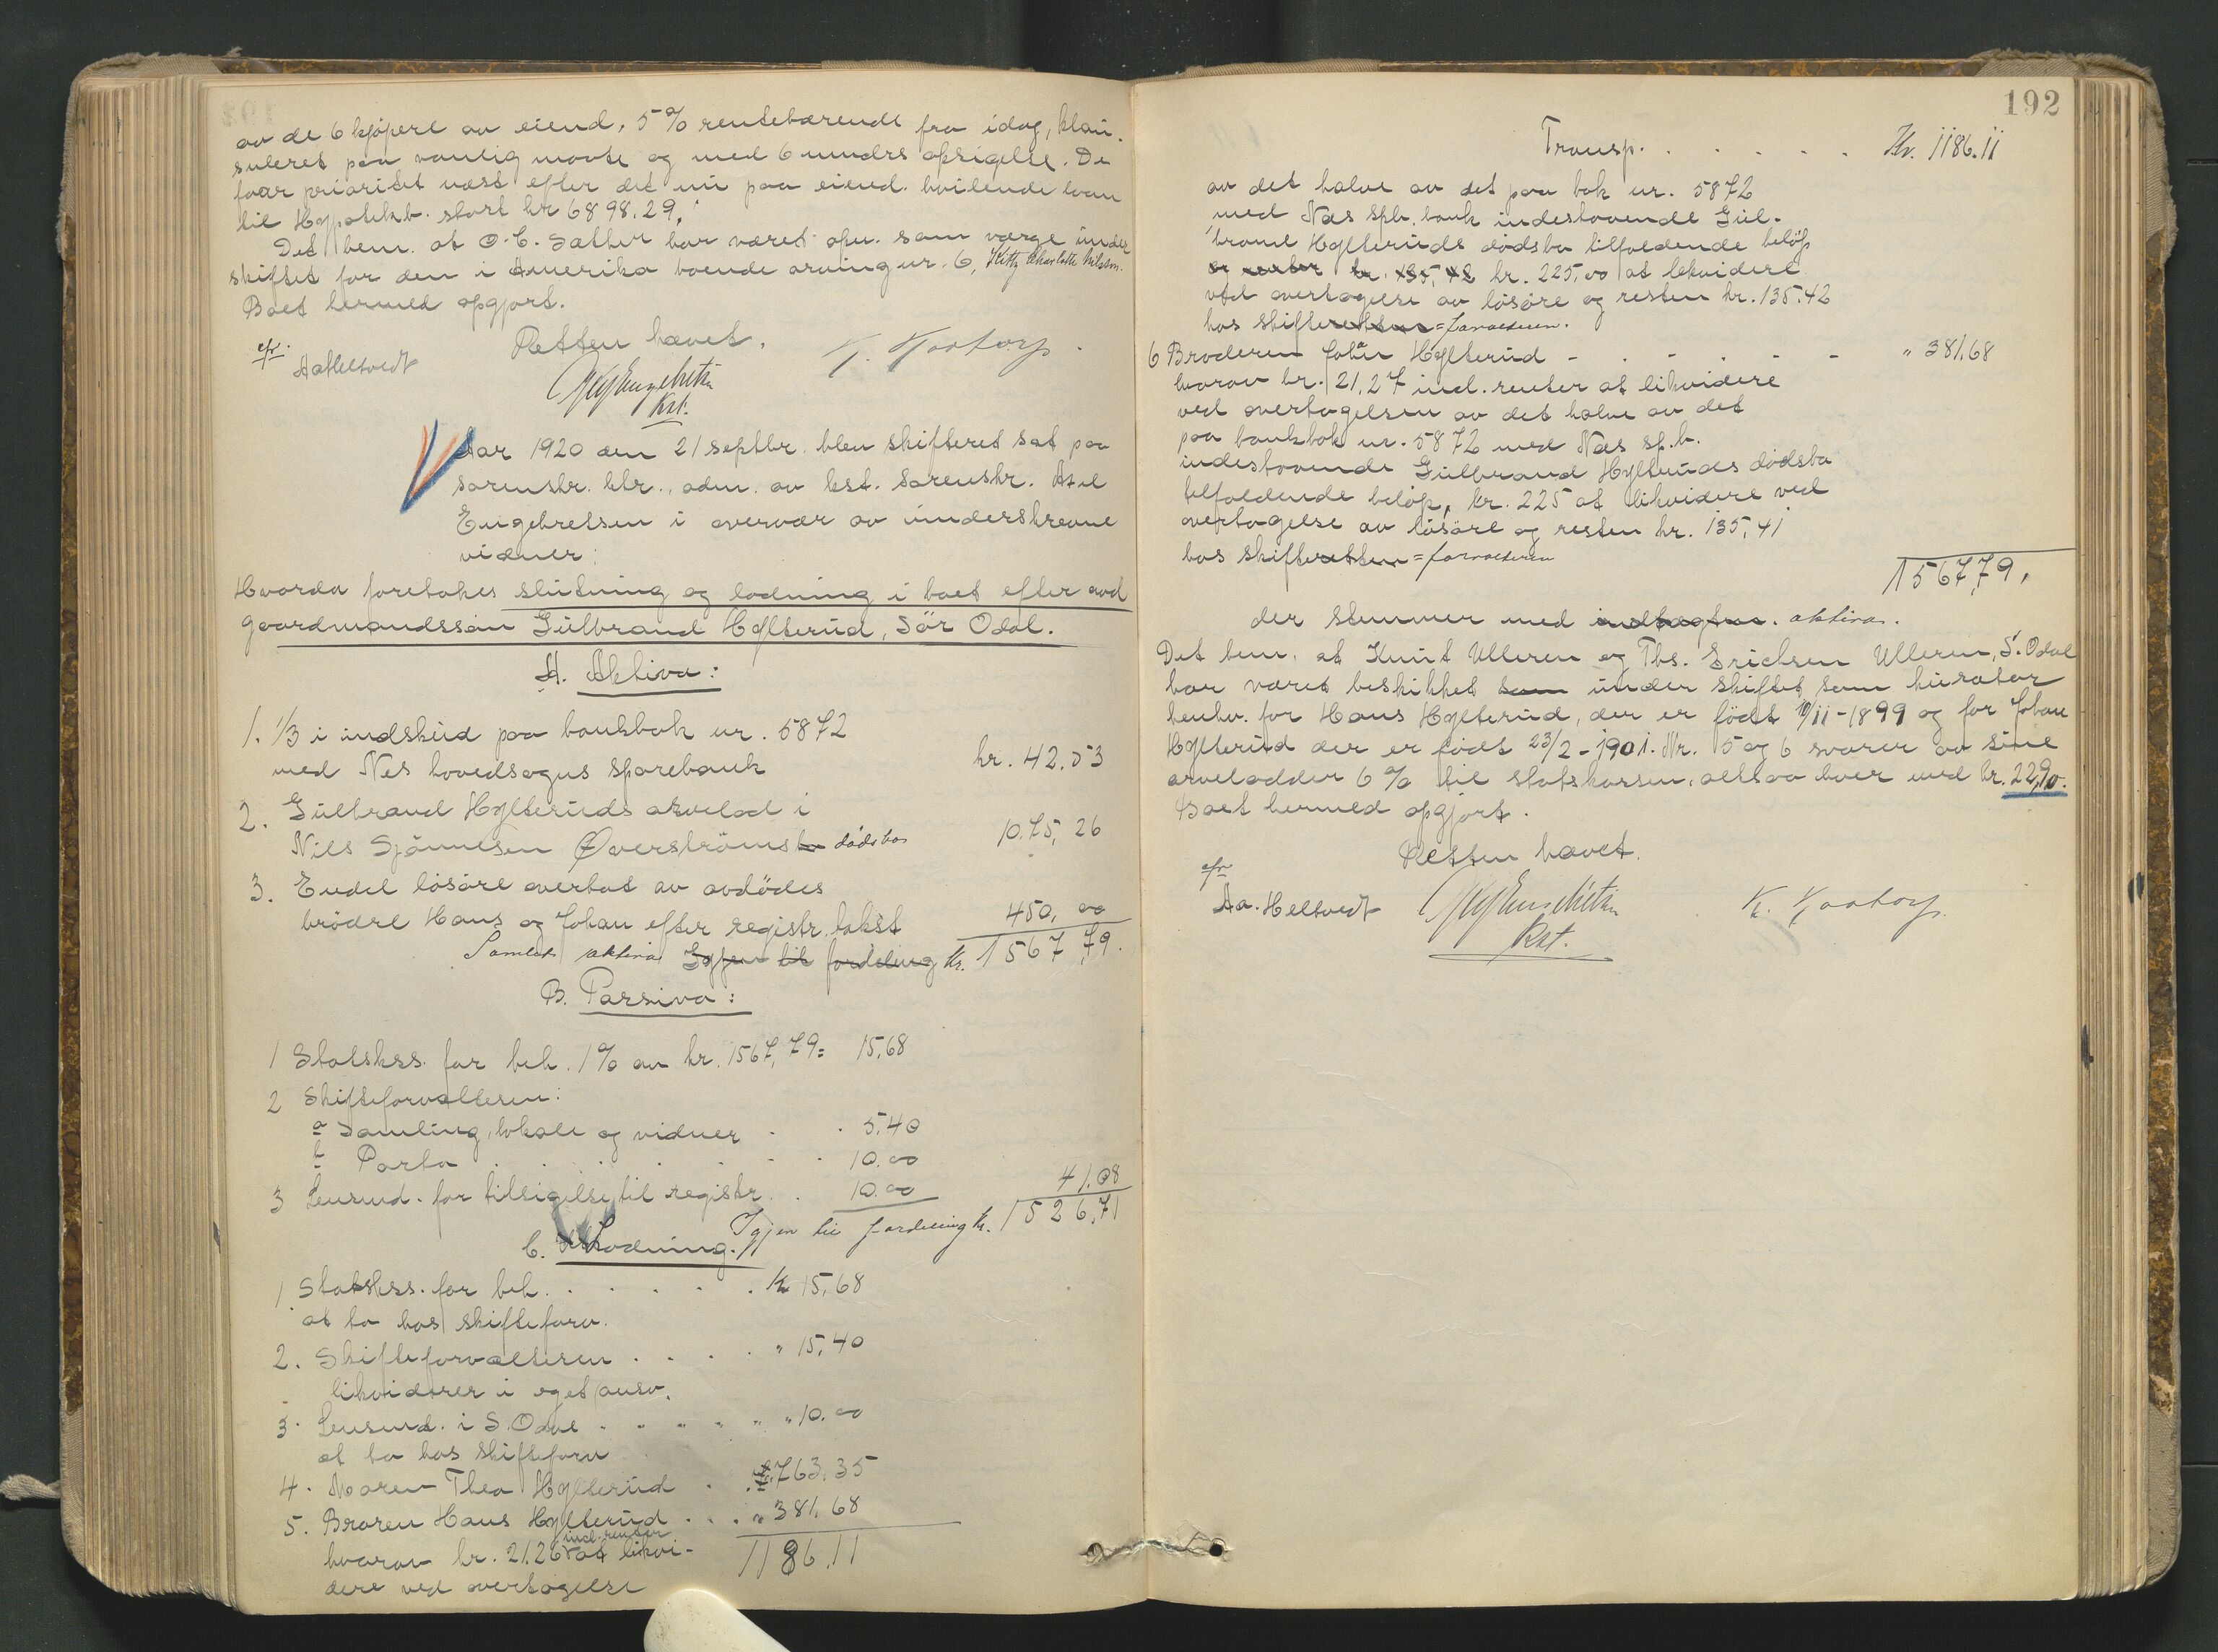 av de 6 kjöpere av eiend. 5 % rentebærende fra idag, klau-
suleret paa vanlig maate og med 6 mndrs opsigelse. De
faar prioritet næst efter det nu paa eiend. hvilende laan
til Hypotekb. stort kr 6898.29.
Det bem. at O. C. Sætter har været opn. som værge under
skiftet for den i Amerika boende arving nr. 6, Kitty Charlotte Nilsson.
Boet hermed opgjort.
Retten hævet.
efr.
Aa Heltvedt
K. Kaatorp.
Kst.
Aar 1920 den 21 septbr. blev skifteret sat paa
sorenskr. ktr., adm. av kst. sorenskr. Axel
Engebretsen i overvær av underskrevne
vidner:
Hvorda foretokes slutning og lodning i boet efter avd
gaardmandssøn Gulbrand Hylterud, Sör Odal.
A. Aktiva:
1. 1/3 i indskud paa bankbok nr. 5872
med Nes hovedsogns sparebank kr. 42.53
2. Gulbrand Hylteruds arvelod i
Nils Øverströms dödsbo 1075,26
3. Endel lösöre overtat av avdödes
brödre Hans og Johan efter registr. takst 450,00
Samlet aktiva Igjen til fordeling Kr. 1567,79.
B. Passiva:
1 Statskss. for beh. 1% av kr. 1567,79 = 15,68
2 Skifteforvalteren:
a Samling, lokale og vidner . . 5.40
b Porto . . . . . . 10.00
3 Lensmd. for tilsigelse, til registr. . 10.00 41.08
Igjen til fordeling kr. 1526,71
C. Lodning.
1 Statskss. for beh. . . . . . Kr 15,68
at ta hos skifteforv.
2. Skifteforvalteren . . . . " 15,40
likviderer i eget ansv.
3. Lensmd. i S. Odal . . . . " 10.00
at ta hos skifteforv
4. Moren Thea Hylterud . . 763.35
5. Broren Hans Hylterud . . . " 381,68
hvorav kr. 21.26 incl. renter at likvi- 1186.11
dere ved overtagelse
192
Transp. . . . . . Kr. 1186.11
av det halve av det paa bok nr. 5872
med Nes spb. bank indestaaende Gul-
brand Hylteruds dödsbo tilfaldende belöp
kr. 135,42 kr. 225,00 at likvidere
ved overtagelse av lösöre og resten kr. 135.42
hos skifteretten = forvalteren.
6 Broderen Johan Hylterud - . - . - - " 381.68
hvorav kr. 21.27 incl. renter at likvidere
ved overtagelsen av det halve av det
paa bankbok nr. 5872 med Nes sp.b.
indestaaende Gulbrand Hylteruds dödsbo
tilfaldende belöp, kr. 225 at likvidere ved
overtagelse av lösöre og resten kr. 135,41
hos skifteretten = forvalteren
1567,79.
der stemmer med indtægten. aktiva.
Det bem. at Knut Ulleren og Ths. Erichsen Ulleren, S. Odal
har været beskikket som under skiftet som kurator
henhv. for Hans Hylterud, der er födt 10/11-1899 og for Johan
Hylterud der er födt 23/2-1901. Nr. 5 og 6 svarer av sine
arvelodder 6 % til statskassen, altsaa hver med kr. 22,90.
Boet hermed opgjort.
Retten hævet.
efr
Aa. Heltvedt
K. Kaatorp.
Kst.